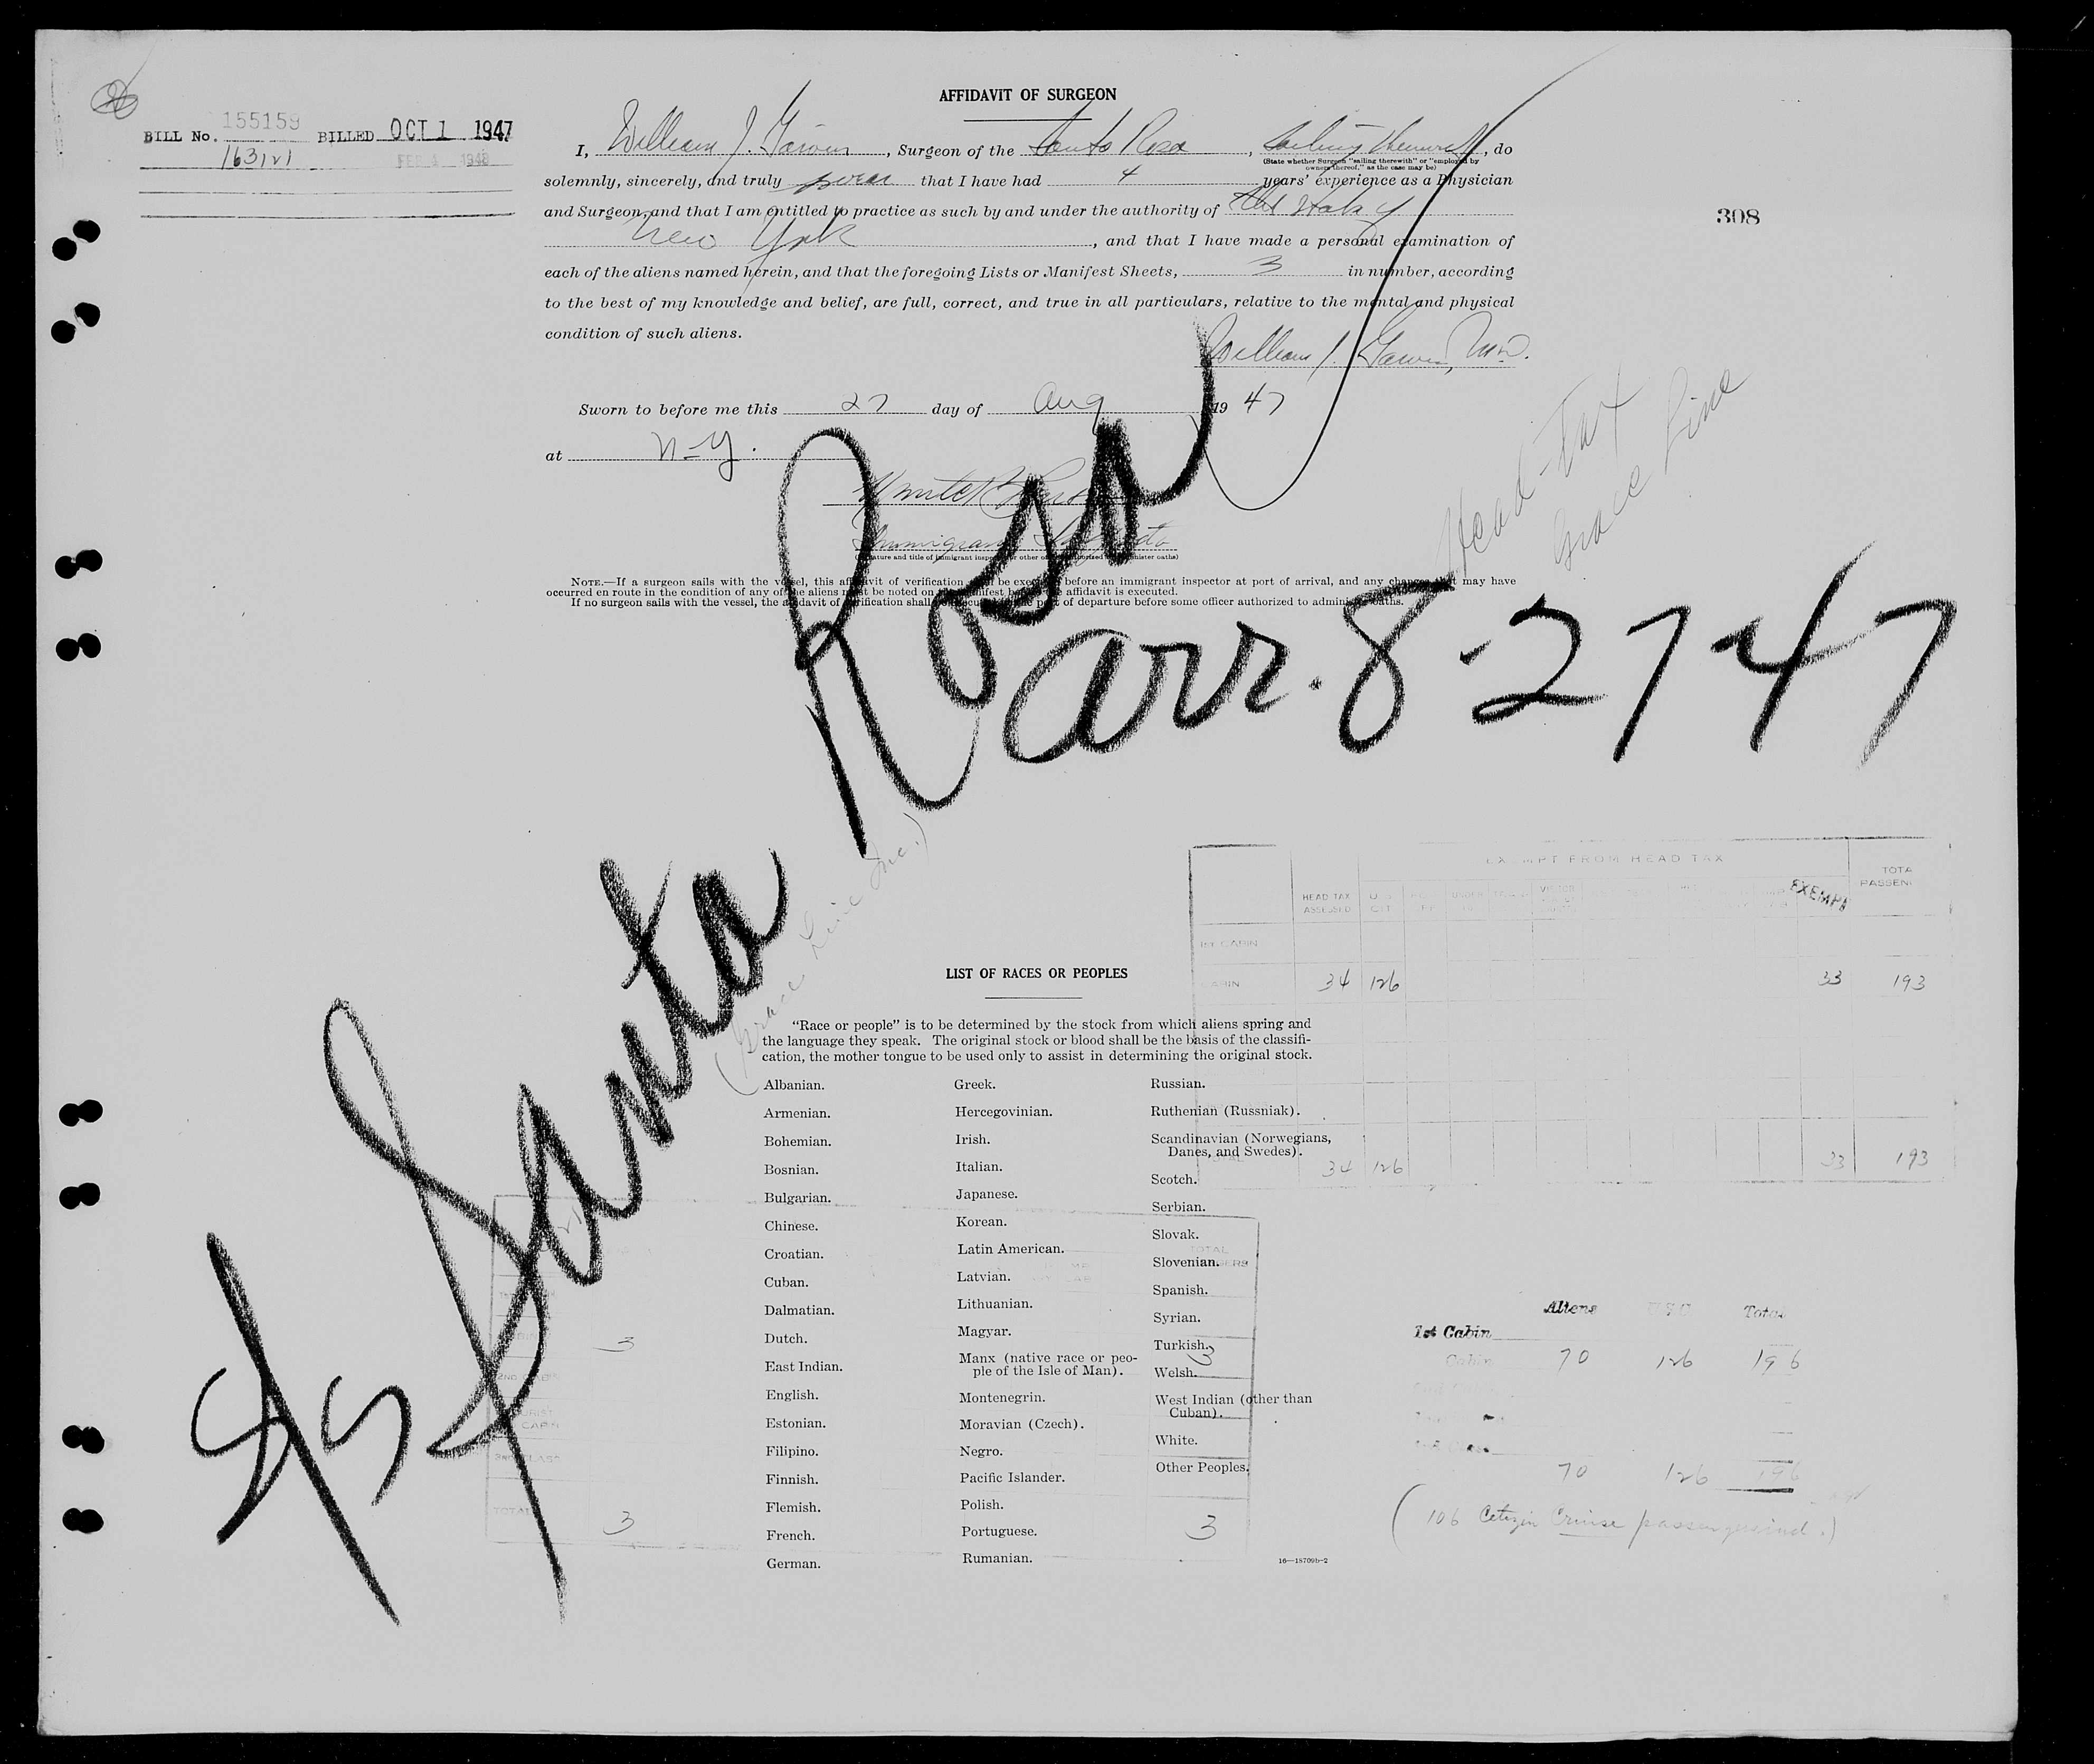 AFFIDAVIT OF SURGEON
BILL No. 155159 BILLED OCT 1 1947
163121 FEB 4 1948
I, William J. , Surgeon of the Santa Rosa , Sailing therewith , do
(State whether Surgeon "sailing therewith" or "employed by
owners thereof," as the case may be)
solemnly, sincerely, and truly swear that I have had 4 years' experience as a Physician
and Surgeon, and that I am entitled to practice as such by and under the authority of the State of
New York , and that I have made a personal examination of
308
each of the aliens named herein, and that the foregoing Lists or Manifest Sheets, 3 in number, according
to the best of my knowledge and belief, are full, correct, and true in all particulars, relative to the mental and physical
condition of such aliens.
William J. , M.D.
Sworn to before me this 27 day of Aug 1947
at N-Y.
Immigrant
(Signature and title of immigrant inspector or other officer authorized to administer oaths)
NOTE.—If a surgeon sails with the vessel, this affidavit of verification shall be executed before an immigrant inspector at port of arrival, and any changes that may have
occurred en route in the condition of any of the aliens must be noted on the manifest before the affidavit is executed.
If no surgeon sails with the vessel, the affidavit of verification shall be executed at the port of departure before some officer authorized to administer oaths.
Head-Tax
Grace Line
S/S Santa Rosa
arr. 8-27-47
(Grace Line Inc.)
EXEMPT FROM HEAD TAX
HEAD TAX ASSESSED
EXEMPT
1st CABIN
CABIN 34 126 33 193
TOTAL 34 126 33 193
LIST OF RACES OR PEOPLES
"Race or people" is to be determined by the stock from which aliens spring and
the language they speak. The original stock or blood shall be the basis of the classifi-
cation, the mother tongue to be used only to assist in determining the original stock.
Albanian.
Armenian.
Bohemian.
Bosnian.
Bulgarian.
Chinese.
Croatian.
Cuban.
Dalmatian.
Dutch.
East Indian.
English.
Estonian.
Filipino.
Finnish.
Flemish.
French.
German.
Greek.
Hercegovinian.
Irish.
Italian.
Japanese.
Korean.
Latin American.
Latvian.
Lithuanian.
Magyar.
Manx (native race or peo-
ple of the Isle of Man).
Montenegrin.
Moravian (Czech).
Negro.
Pacific Islander.
Polish.
Portuguese.
Rumanian.
Russian.
Ruthenian (Russniak).
Scandinavian (Norwegians,
Danes, and Swedes).
Scotch.
Serbian.
Slovak.
Slovenian.
Spanish.
Syrian.
Turkish.
Welsh.
West Indian (other than
Cuban).
White.
Other Peoples.
16—18709b-2
3 3
TOTAL 3 3
Aliens USC Total
1st Cabin
Cabin 70 126 196
70 126 196
(106 Citizen Cruise passengers ind.)